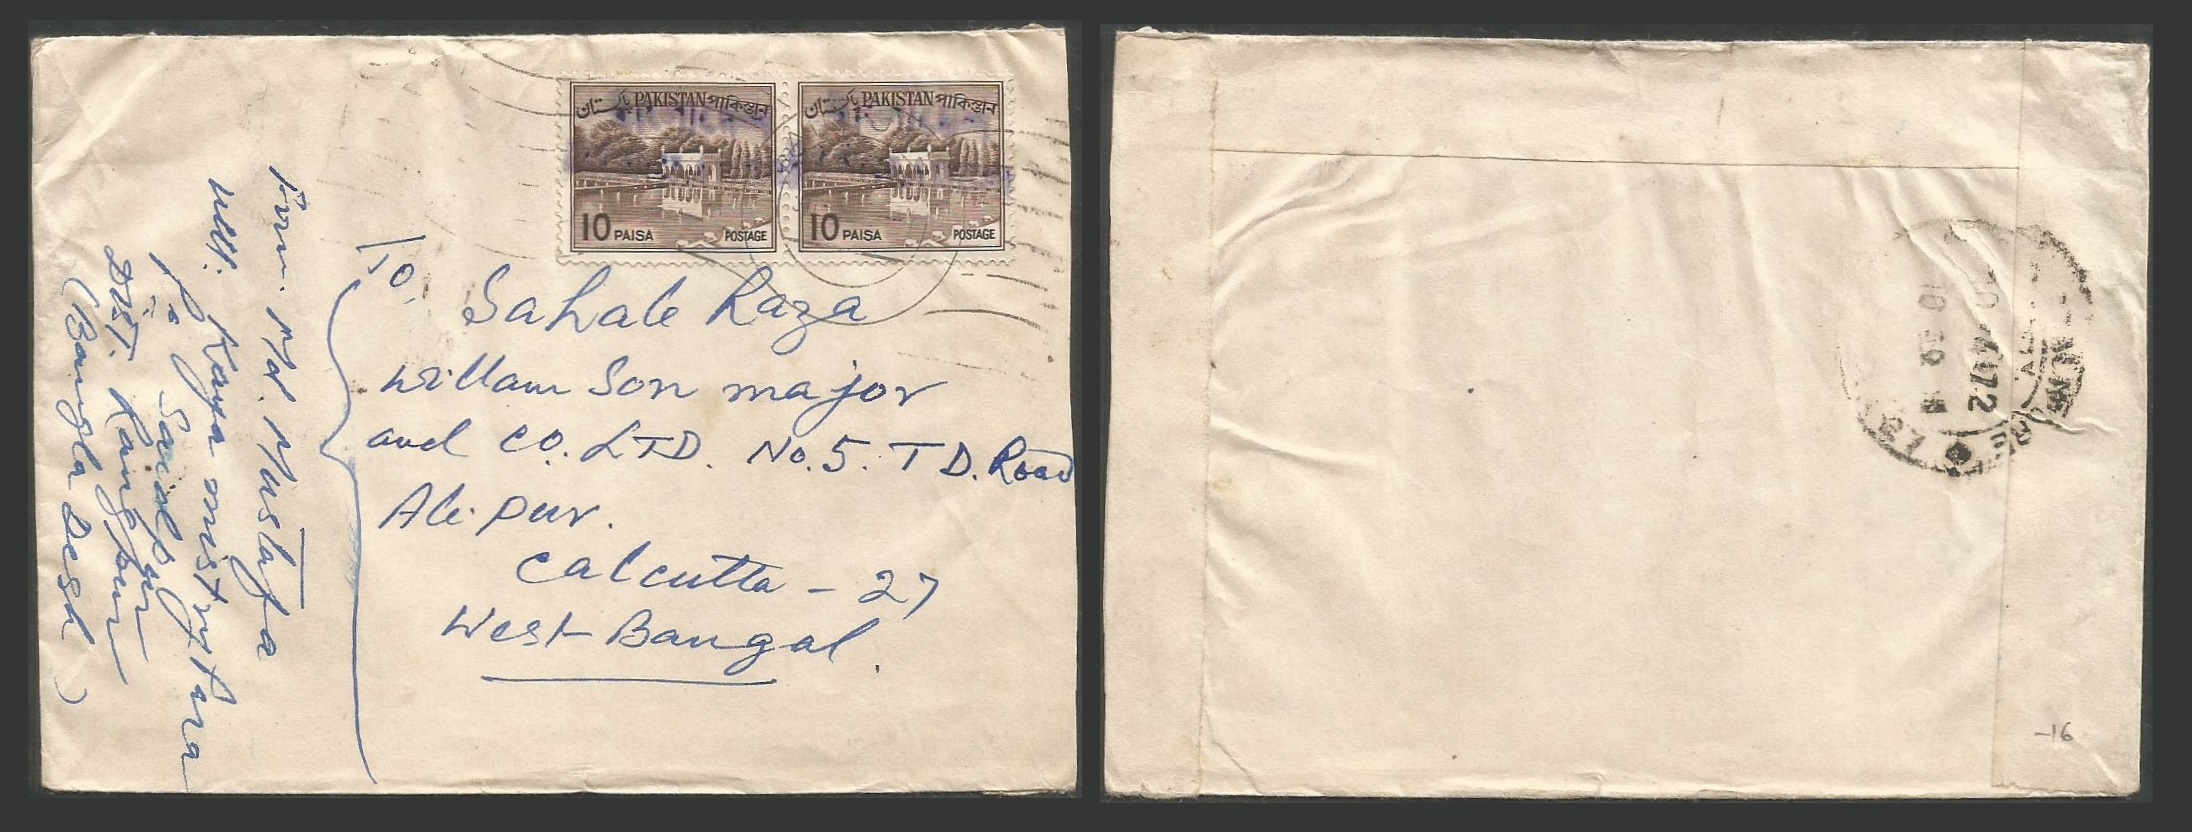 پاکستان PAKISTAN পাকিস্তান
10 PAISA POSTAGE
پاکستان PAKISTAN পাকিস্তান
10 PAISA POSTAGE
To,
Sahale Raza
Willam Son major
and CO. LTD. No. 5. T D. Road
Ali pur.
Calcutta - 27
West Bangal.
From. Md. Mustafa
Vill: Kaya mistrytara
P.o Saidpur
Dist. Rangpur
(Bangla Desh)
-16